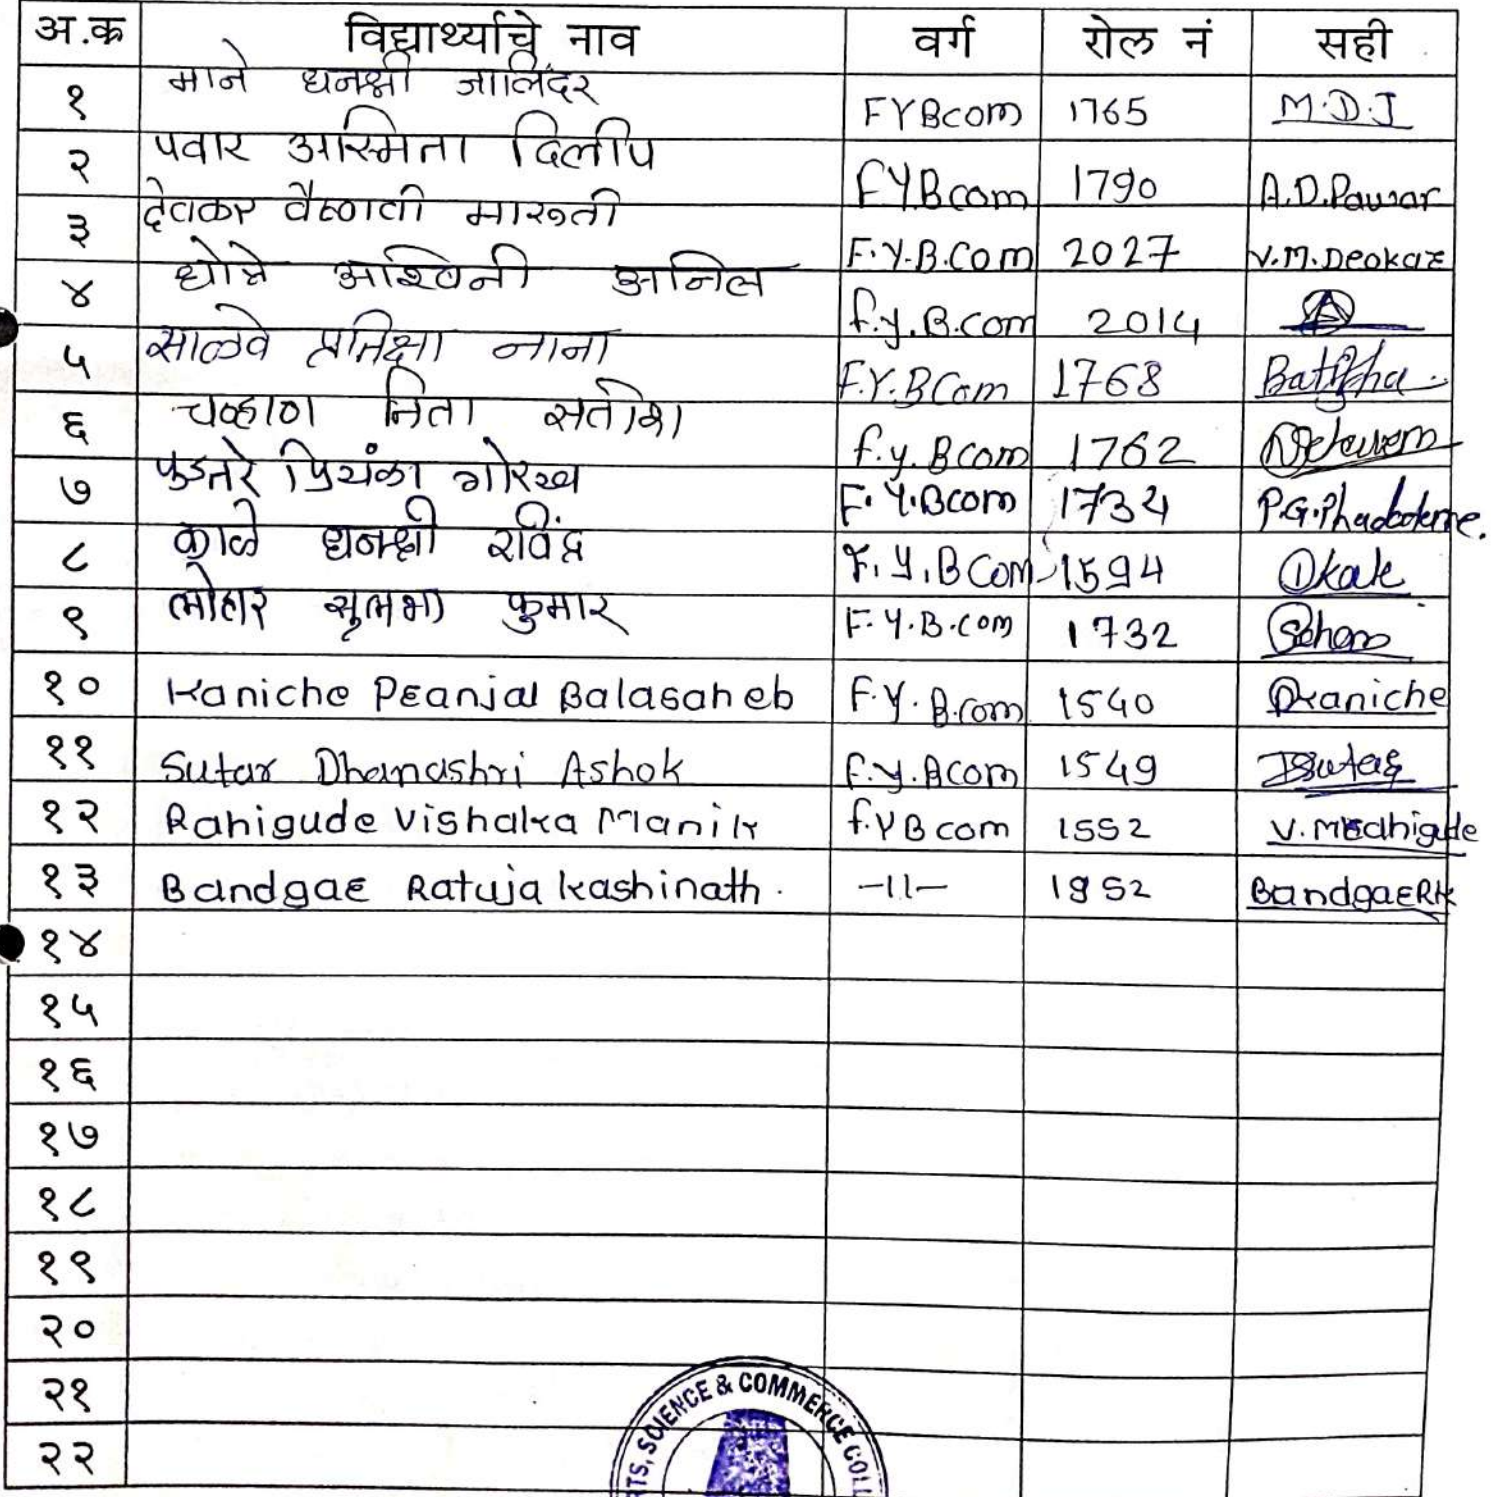 अ.क्र विद्यार्थ्याचे नाव वर्ग रोल नं सही
१ माने धनश्री जालिंदर FYBcom 1765 M.D.J
२ पवार अस्मिता दिलीप F.Y.Bcom 1790 A.D.Pawar
३ देवकर वैष्णवी मारुती F.Y.B.Com 2027 V.M.Deokar
४ धोत्रे अश्विनी अनिल f.y.B.com 2014
५ साळवे प्रतिक्षा नाना F.Y.BCom 1768
६ चव्हाण निता सतोश f.y.Bcom 1762
७ फडतरे प्रियंका गोरख F.Y.Bcom 1734
८ काळे धनश्री रविंद्र F.Y.BCom 1594 Dkale
९ लोहार सुलभा कुमार F.Y.B.com 1732
१० Kaniche Pranjal Balasaheb F.Y.B.com 1540 Pkaniche
११ Sutar Dhanashri Ashok F.y.Bcom 1549 Dsutar
१२ Rahigude Vishaka Manik f.YBcom 1552
१३ Bandgar Ratuja kashinath. -11- 1952 BandgarRK
१४
१५
१६
१७
१८
१९
२०
२१
२२
SCIENCE & COMMERCE